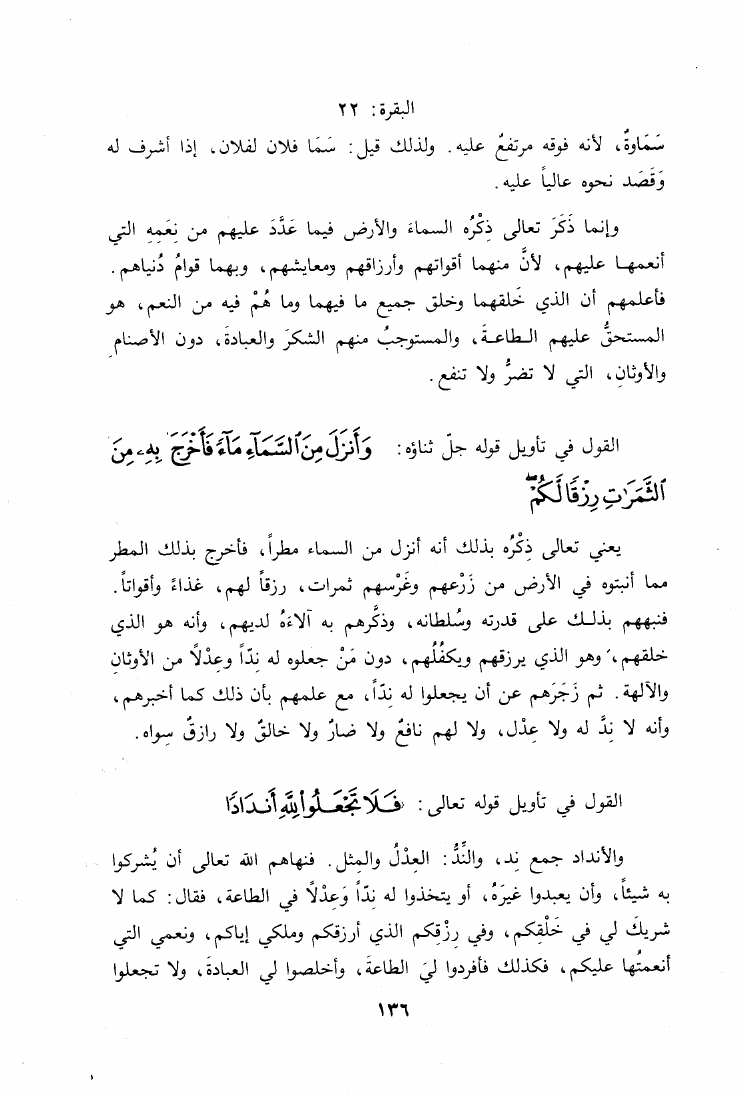 البقرة: ٢٢
سَمَاوةٌ، لأنه فوقه مرتفعٌ عليه. ولذلك قيل: سَمَا فلان لفلان، إذا أشرف له
وَقَصَد نحوه عالياً عليه.
وإنما ذَكَرَ تعالى ذِكْرُه السماءَ والأرض فيما عَدَّدَ عليهم من نِعَمِهِ التي
أنعمهـا عليهم، لأنَّ منهما أقواتهم وأرزاقهم ومعايشهم، وبهما قوامُ دُنياهم.
فأعلمهم أن الذي خَلقهما وخلق جميع ما فيهما وما هُمْ فيه من النعم، هو
المستحقُّ عليهم الـطاعـةَ، والمستوجبُ منهم الشكرَ والعبادةَ، دون الأصنامِ
والأوثانِ، التي لا تضرُّ ولا تنفع.
القول في تأويل قوله جلّ ثناؤه: وَأَنزَلَ مِنَ ٱلسَّمَآءِ مَآءً فَأَخْرَجَ بِهِۦ مِنَ
ٱلثَّمَرَٰتِ رِزْقًا لَّكُمْ ۖ
يعني تعالى ذِكْرُه بذلك أنه أنزل من السماء مطراً، فأخرج بذلك المطر
مما أنبتوه في الأرض من زَرْعهم وغَرْسهم ثمرات، رزقاً لهم، غذاءً وأقواتاً.
فنبههم بذلـك على قدرته وسُلطانه، وذكَّرهم به آلاءَهُ لديهم، وأنه هو الذي
خلقهم، وهو الذي يرزقهم ويكفُلُهم، دون مَنْ جعلوه له نِدّاً وعِدْلًا من الأوثانِ
والآلهة. ثم زَجَرَهم عن أن يجعلوا له نِدّاً، مع علمهم بأن ذلك كما أخبرهم،
وأنه لا نِدَّ له ولا عِدْل، ولا لهم نافعٌ ولا ضارٌ ولا خالقٌ ولا رازقٌ سِواه.
القول في تأويل قوله تعالى: فَلَا تَجْعَلُوا۟ لِلَّهِ أَندَادًا
والأنداد جمع نِد، والنِّدُّ: العِدْلُ والمِثل. فنهاهم الله تعالى أن يُشركوا
به شيئاً، وأن يعبدوا غيرَهُ، أو يتخذوا له نِدّاً وَعِدْلًا في الطاعة، فقال: كما لا
شريكَ لي في خَلْقِكم، وفي رِزْقِكم الذي أرزقكم وملكي إياكم، ونعمي التي
أنعمتُها عليكم، فكذلك فأفردوا ليَ الطاعةَ، وأخلصوا لي العبادةَ، ولا تجعلوا
١٣٦